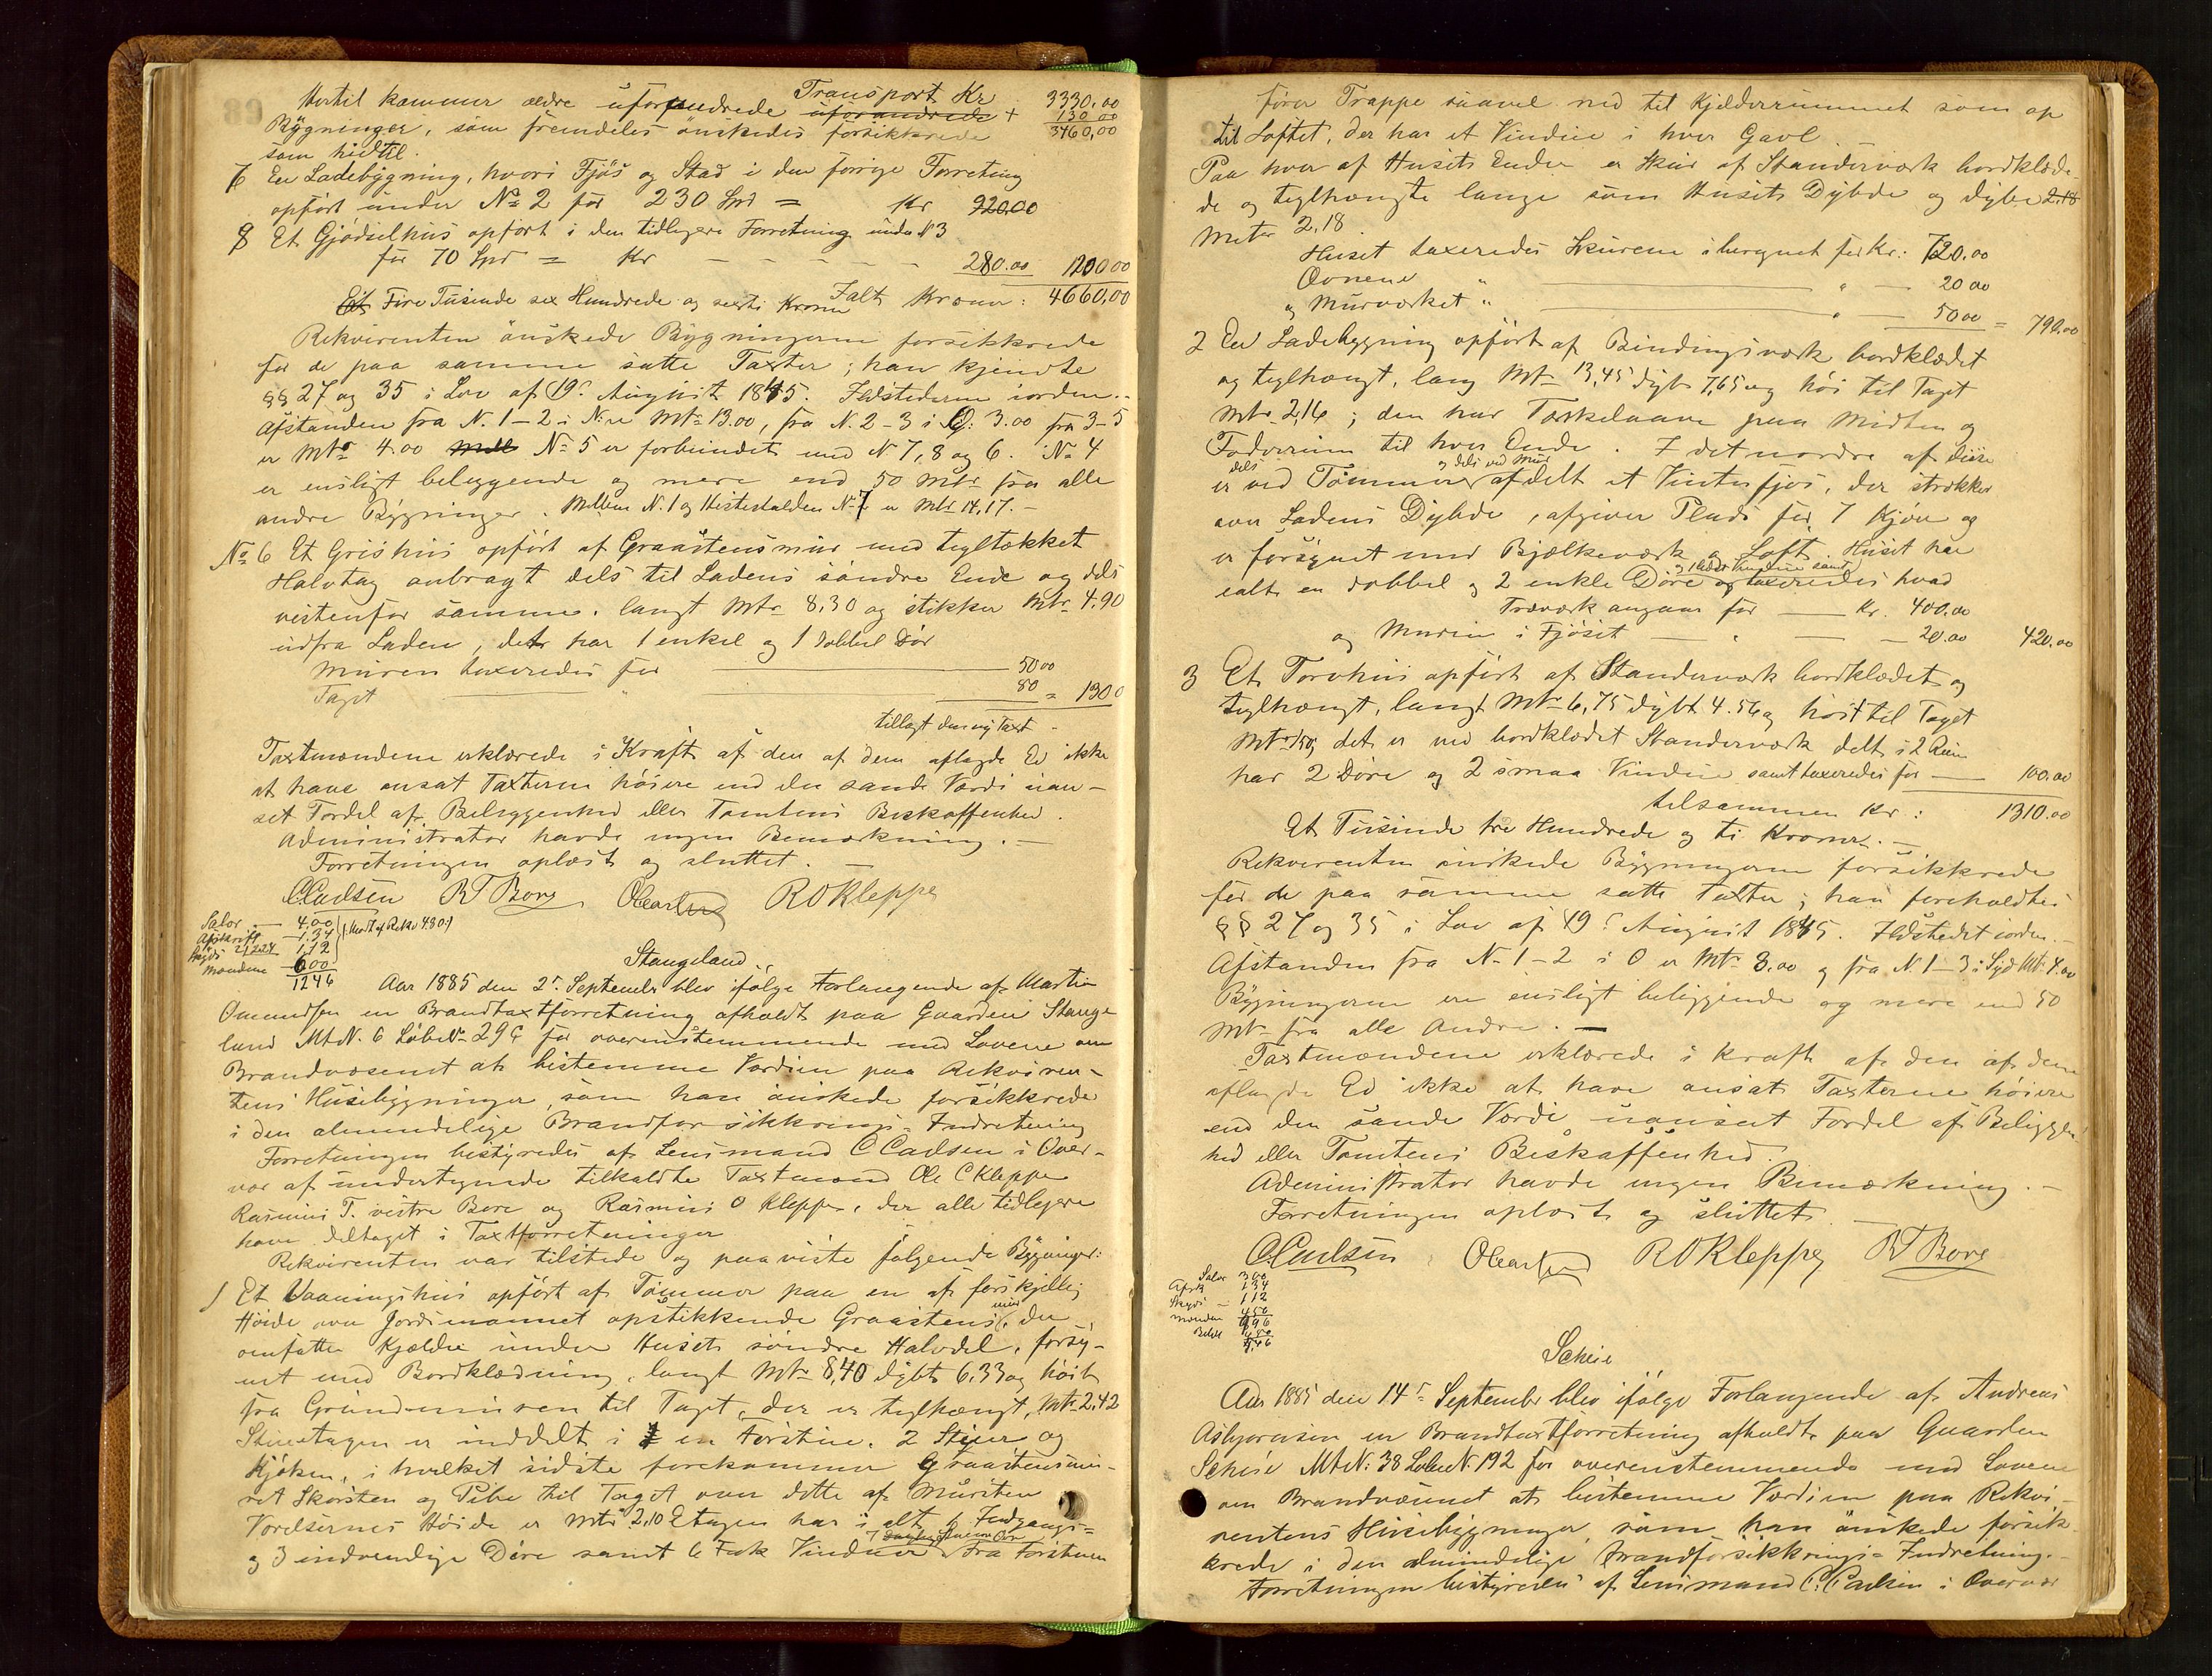 Transport Kr 3330,00
Hertil kommer ældre uforandrede uforandrede + 130 00
Bygninger, som fremdeles önskedes forsikkrede 3460,00
som hidtil.
7 En Ladebygning, hvori Fjös og Stad i den forrige Forretning
opfört under No 2 for 230 Spd = Kr 920.00
8 Et Gjödselhus opfört i den tidligere Forretning under N 3
for 70 Spd = Kr 280.00 1200.00
Ialt Kroner: 4660,00
Et Fire Tusinde sex Hundrede og sexti Kroner
Rekvirenten önskede Bygningerne forsikkrede
for de paa samme satte Taxter; han kjendte
§§ 27 og 35 i Lov af 19de August 1845. Ildstederne iorden.-
Afstanden fra N. 1-2 i N. er Mtr 13.00, fra N. 2-3 i O: 3.00 fra 3-5
er Mtr 4.00 No 5 er forbundet med N 7, 8 og 6. No 4
er ensligt beliggende og mere end 50 Mtr fra alle
andre Bygninger. Mellem N. 1 og Hestestalden N. 7 er Mtr 14,17.-
No 6 Et Grishus opfört af Graastensmur med tegltækket
Halvtag anbragt dels til Ladens söndre Ende og dels
vestenfor samme, langt Mtr 8,30 og stikker Mtr 4.90
udfra Laden, det har 1 enkel og 1 dobbel Dör
Muren taxeredes for 50 00
Taget " 80 = 130 0
tillagt den ny Taxt -
Taxtmændene erklærede i Kraft af den af dem aflagde Ed ikke
at have ansat Taxterne höiere end den sande Værdi uan-
set Fordel af Beliggenhed eller Tomtens Beskaffenhed.
Administrator havde ingen Bemærkning. -
Forretningen oplæst og sluttet. -
CCarlsen RTBore OCarlsen ROKleppe
Salær - 4.00
Afskrift - 1,34 (: Modt af Rekv 4.80:)
Skyds 1,12
Mændene 6 00
1246
Stangeland.
Aar 1885 den 2den September blev ifölge Forlangende af Martin
Omundsen en Brandtaxtforretning afholdt paa Gaarden Stange
land Mt N. 6 Löbe No 29c for overenstemmende med Lovene om
Brandvæsenet at bestemme Værdien paa Rekviren-
tens Husebygninger, som han önskede forsikkrede
i den almindelige Brandforsikkrings-Indretning
Forretningen bestyredes af Lensmand C Carlsen i Over-
vær af undertegnede tilkaldte Taxtmænd Ole C Kleppe
Rasmus T. vestre Bore og Rasmus O Kleppe, der alle tidligere
have deltaget i Taxtforretninger
Rekvirenten var tilstede og paaviste fölgende Bygninger:
1 Et Vaaningshus opfört af Tömmer paa en af forskjellig
Höide over Jordsmonnet opstikkende Graastensmur, der
omfatter Kjælder under Husets söndre Halvdel, forsy-
net med Bordklædning, langt Mtr 8,40 dybt 6,33 og höit
fra Grundmuren til Taget, der er teglhængt, Mtr 2,42
Stueetagen er inddelt i en Forstue, 2 Stuer og
Kjöken, i hvilket sidste forekommer Graastensmu-
ret Skorsten og Pibe til Taget over dette af Mursten
Værelsernes Höide er Mtr 2,10 Etagen har i alt 6 Indgangs-
og 3 indvendige Döre samt 6 Fak Vinduer Fra Forstuen
förer Trappe saavel ned til Kjelderrummet som op
til Loftet, der har et Vindue i hver Gavl.
Paa hver af Husets Ender er Skur af Standerværk bordklæde-
de og teglhængte lange som Husets Dybde og dybe 2.18
Meter 2,18.
Huset taxeredes Skurene iberegnet for Kr: 720.00
Ovnene " " 20 00
og Murværket " " 50 00 = 790.00
2 En Ladebygning opfört af Bindingsværk bordklædet
og teglhængt, lang Mtr 13,45 dyb 7,65 og höi til Taget
Mtr 2,16; den har Tærskelaave paa Midten og
Foderrum til hver Ende. I det nordre af disse
er dels ved Tömmer og dels ved Mur afdelt et Vinterfjös, der strækker
over Ladens Dybde, afgiver Plads for 7 Kjör og
er forsynet med Bjælkeværk og Loft. Huset har
ialt en dobbel og 2 enkle Döre og taxeredes hvad
Træværk angaar for Kr. 400.00
og Muren i Fjöset " 20.00 420.00
3 Et Torvhus opfört af Standerværk bordklædet og
teglhængt, langt Mtr 6,75 dybt 4.56 og höit til Taget
Mtr 1,50, det er med bordklædet Standerværk delt i 2 Rum
har 2 Döre og 2 smaa Vinduer samt taxeredes for 100.00
tilsammen Kr: 1310.00
Et Tusinde tre Hundrede og ti Kroner. -
Rekvirenten önskede Bygningerne forsikkrede
for de paa samme satte Taxter; han foreholdtes
§§ 27 og 35 i Lov af 19de August 1845. Ildstedet iorden.-
Afstanden fra N. 1-2 i O er Mtr 8.00 og fra N. 1-3 i Syd Mtr 4.00
Bygningerne ere ensligt beliggende og mere end 50
Mtr fra alle Andre. -
Taxtmændene erklærede i Kraft af den af dem
aflagde Ed ikke at have ansat Taxterne höiere
end den sande Værdi uanseet Fordel af Beliggen
hed eller Tomtens Beskaffenhed.
Administrator havde ingen Bemærkning. -
Forretningen oplæst og sluttet. -
CCarlsen OCarlsen ROKleppe RTBore
Salær 3 00
Afsk 1 34
Skyds - 1 12
Mænden 4 50
9 96
Scheie
Aar 1885 den 14de September blev ifölge Forlangende af Andreas
Asbjörnsen en Brandtaxtforretning afholdt paa Gaarden
Scheie Mt N: 38 Löbe N. 192 for overenstemmende med Lovene
om Brandvæsenet at bestemme Værdien paa Rekvi-
rentens Husebygninger, som han önskede forsik-
krede i den almindelige Brandforsikkrings-Indretning.-
Forretningen bestyredes af Lensmand C. Carlsen i Overvær